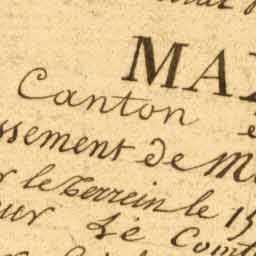 MA
Canton
ssement de M
le Terrein le 15
Le Com